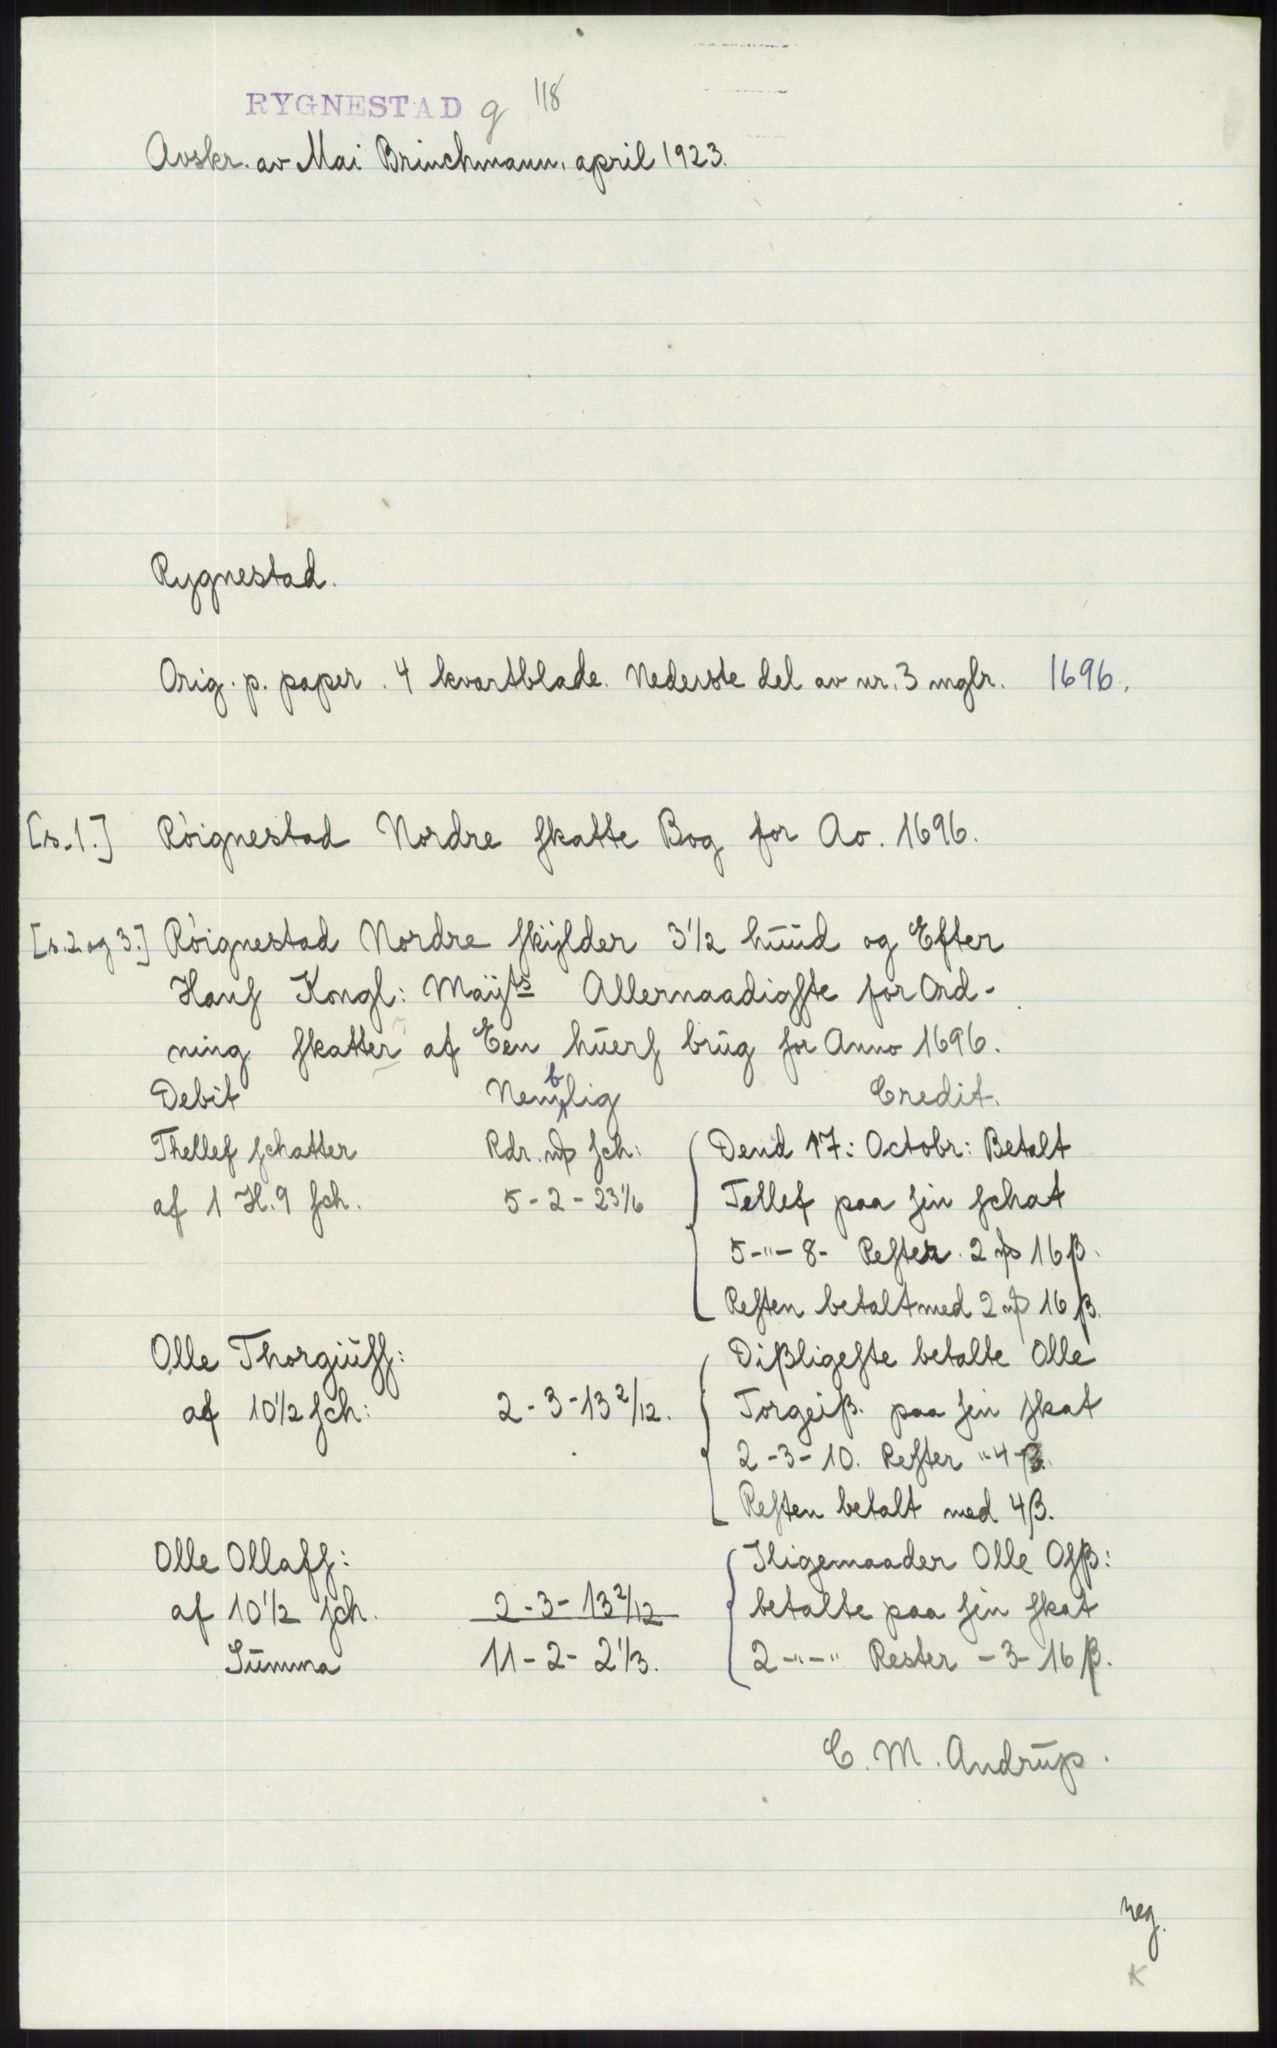 RYGNESTAD g 118
Avskr. av Mai Brinchmann, april 1923.
Rygnestad.
Orig. p. paper. 4 kvartblade. Nederste del av nr. 3 mglr. 1696.
[s. 1.] Röignestad Nordre ſkatte Bog for Ao. 1696.
[s. 2 og 3.] Röignestad Nordre ſkÿlder 3 1/2 huud og Efter
Hanſ Kongl: Maÿts Allernaadigſte for Ord-
ning ſkatter af Een huerſ brug for Anno 1696.
Debit Nemblig Credit.
Thellef ſchatter Rdr. mꝑ ſch: Dend 17: Octobr: Betalt
af 1 H. 9 ſch. 5 - 2 - 23 1/6 Tellef paa ſin ſchat
5 - " - 8 - Reſter 2 mꝑ 16 β.
Reſten betalt med 2 mꝑ 16 β.
Olle Thorgiuſſ: Dißligeſte betalte Olle
af 10 1/2 ſch: 2 - 3 - 13 2/12. Torgeiß. paa ſin ſkat
2 - 3 - 10. Reſter " 4 β.
Reſten betalt med 4 β.
Olle Ollafſ: Iligemaader Olle Olß:
af 10 1/2 ſch. 2 - 3 - 13 2/12 betalte paa ſin ſkat
Summa 11 - 2 - 2 1/3. 2 - " - " Rester - 3 - 16 β.
C. M. Andrup.
reg.
K